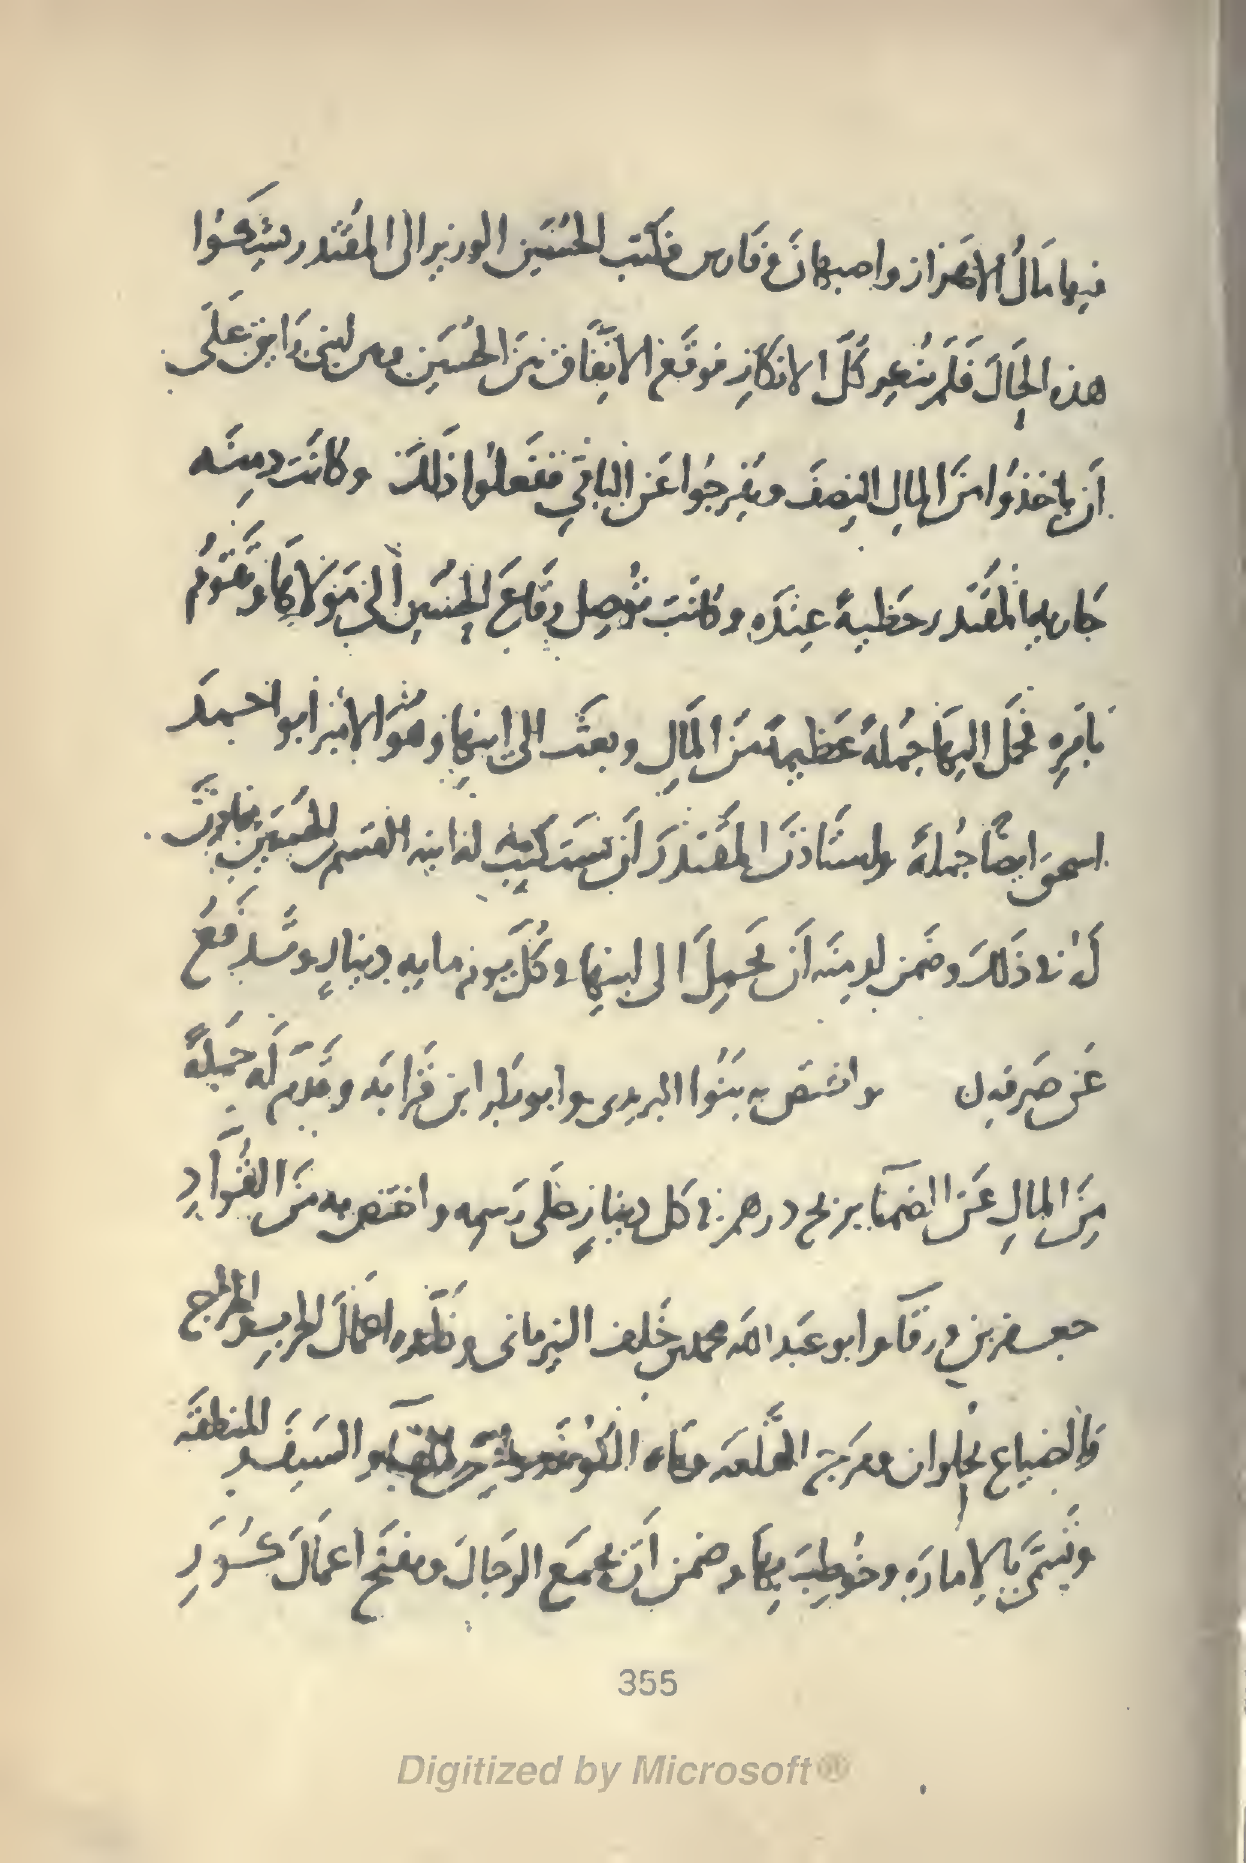 فيها مَالُ الاهَواز واصبهانَ وَفَارس فكتب الحُسَين الوزير الى المُقتَدر يشكُوا
هذه الحِالَ فلَم يُنعِر كُلَّ الانكَارِ فوقَع الاتِفَاق بَينَ الحُسَين وبين ابنَى رَايق عَلَى
اَن ياخذوُا مِنَ المالِ النِصفَ ويُفرِجُوا عَن البَاقِي ففَعلُوا ذَلكَ وكَانَت دمنَه
جَاريه المُقتَدر حَظيةً عِندَه وكَانَت تُوصِل رِقَاعَ الحُسَين اِلى مَولَاهَا وتَقُومُ
بَامرِه فحَمَل اليهَا جُملةً عَظيمةً مِنَ المَالِ وبعَث الى ابنِها وَهُوَ الامير اَبو احمدَ
اسحق ايضًا جُملةً واستَاذنَ المُقتَدرَ اَن تَستَكتِبَ له ابنه القسم بن الحُسَين فاَذِنَ
لَهُ فى ذَلكَ وضَمن لدمنَه اَن يَحمِلَ الى ابنِها فى كُل يَوم مايه دينارٍ وتُدافعُ
عَن صَرفه ن واختصّ به بَنُوا البريدى وابو بَكر ابن قَرابَه وقَدّم لَه جُملةً
مِنَ المالِ عَن الضُمنَا بربح درهم فى كل دينارٍ عَلى رَسمِه واختصّ به مِنَ القُوّادِ
جعفر بن ورقَا وابو عَبد الله محمد بن خَلف النيرمانى وقلّده اعمَالَ الحَرب والخراج
وَالضياع بحلوان ومَرج القلعَه ومَاه الكُوفَه والسَيف والمنطقَه
وتَسمَّى بِالِامارَه وخُوطِبَ بِهَا وضمن اَن يجمعَ الرِجَالَ ويفتَح اعمَالَ كُورِ
355
Digitized by Microsoft®